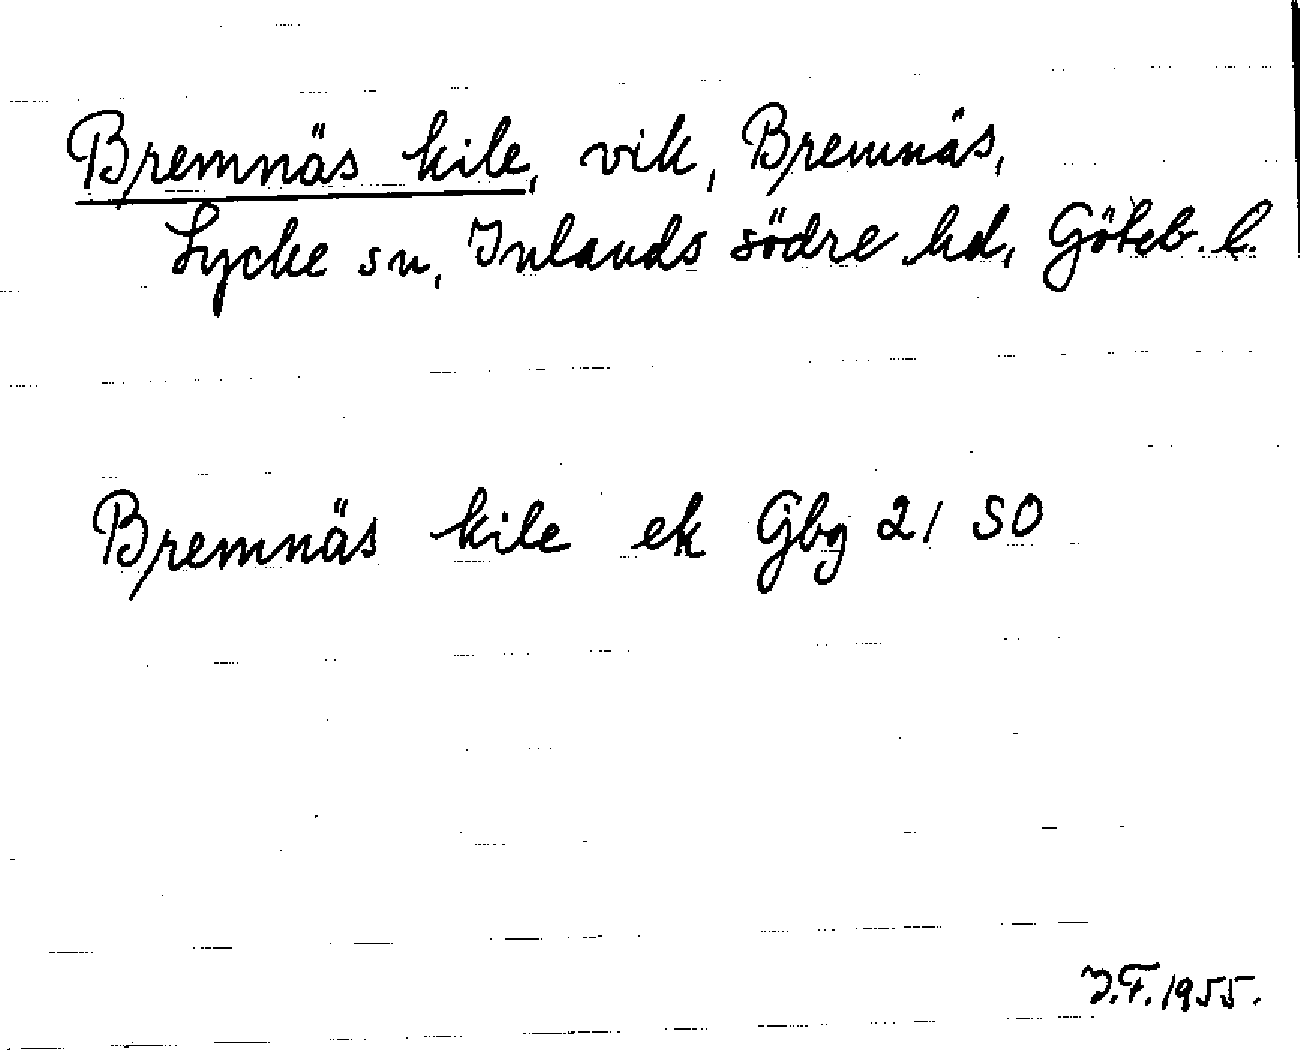 Bremnäs kile, vik, Bremnäs,
Lycke sn, Inlands södre hd, Göteb. l.
Bremnäs kile ek Gbg 21 SO
I.F. 1955.